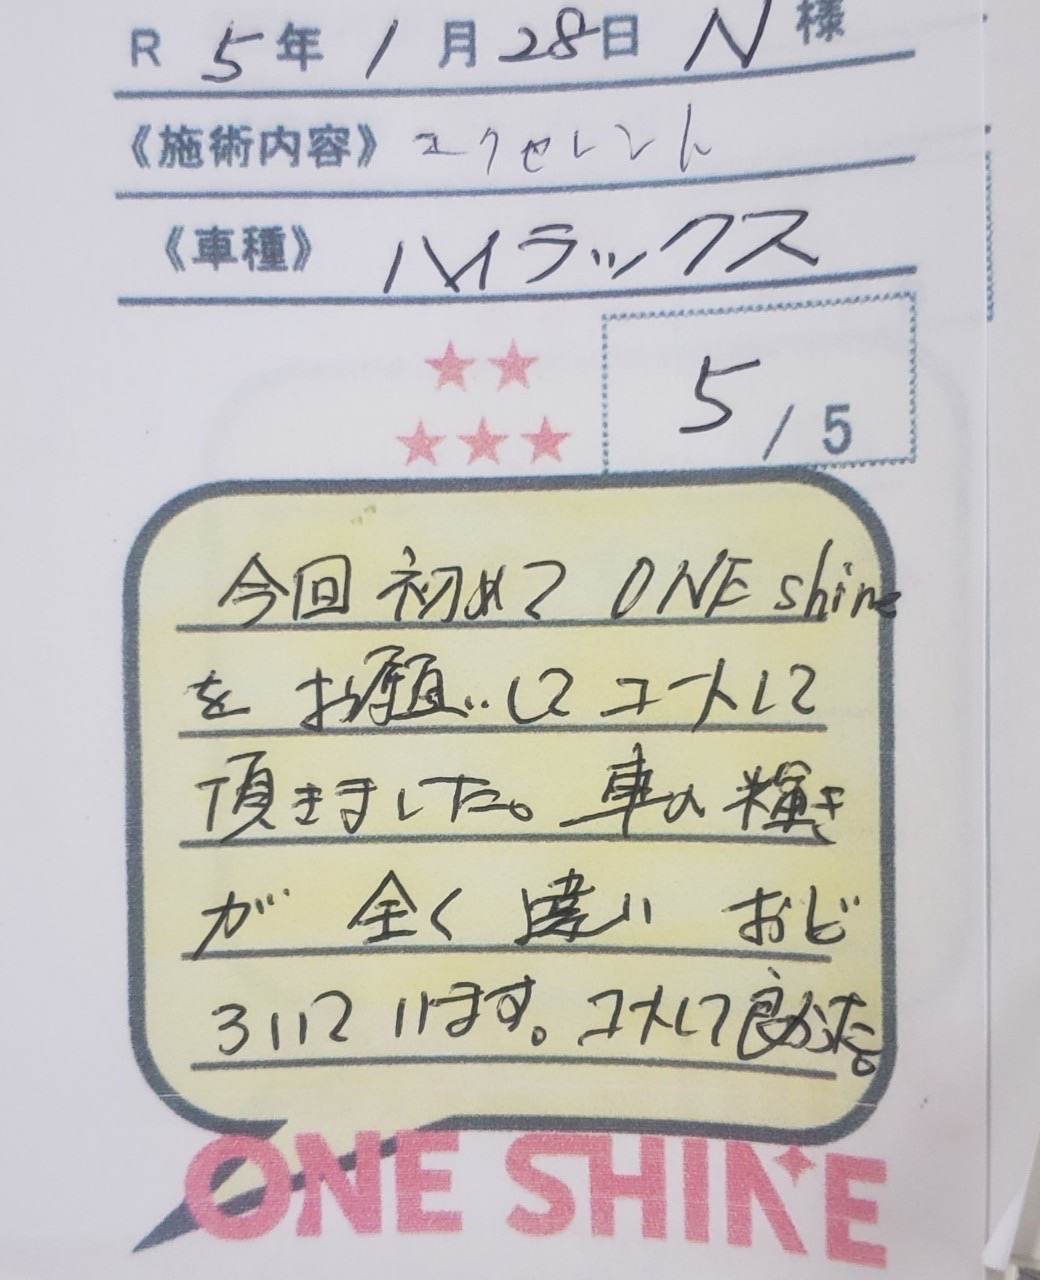 R 5年 1月 28日 N 様
《施術内容》 エクセレント
《車種》 ハイラックス
5 / 5
今回 初めて ONE shine
を お願いして コートして
頂きました。車の輝き
が 全く 違い おど
ろいて います。コートして良かった。
ONE SHINE